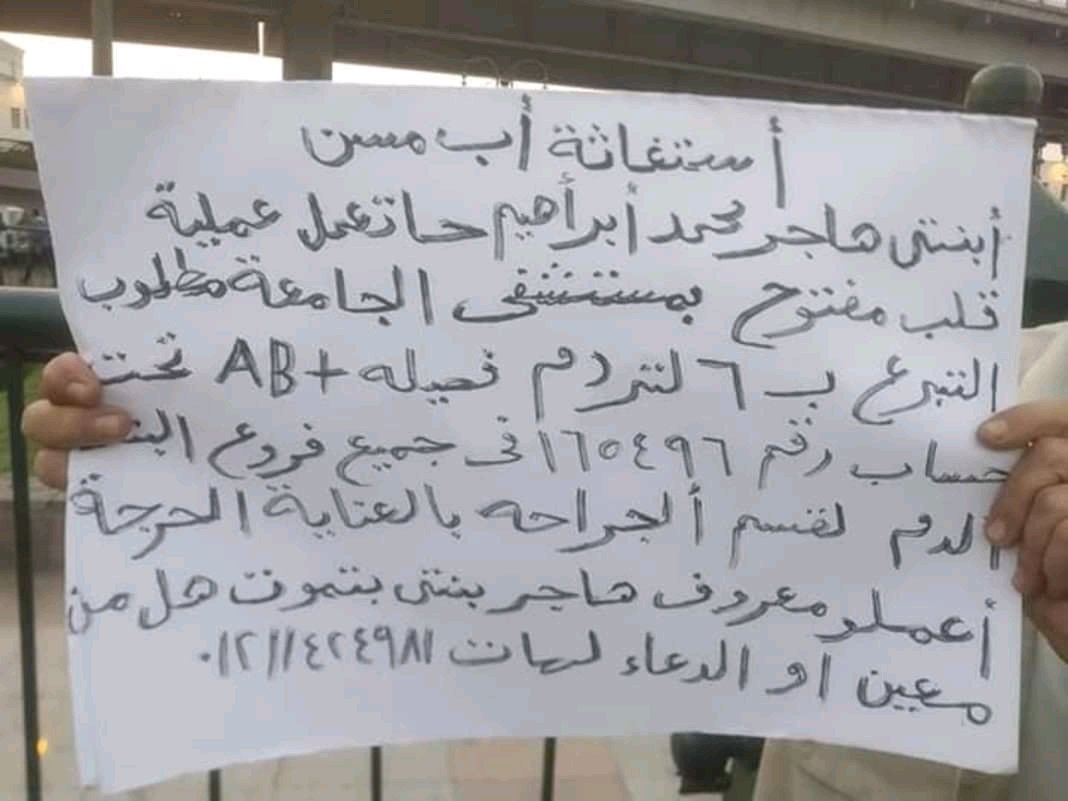 أستغاثة أب مسن
أبنتى هاجر محمد أبراهيم حاتعمل عملية
قلب مفتوح بمستشفى الجامعة مطلوب
التبرع ب ٦ لتر دم فصيله AB+ تحت
حساب رقم ١٦٥٤٩٦ فى جميع فروع
الدم لقسم ألجراحه بالعناية الحرجة
أعملو معروف هاجر بنتى بتموت هل من
معين او الدعاء لهات ٠١٢١١٤٢٤٩٨١